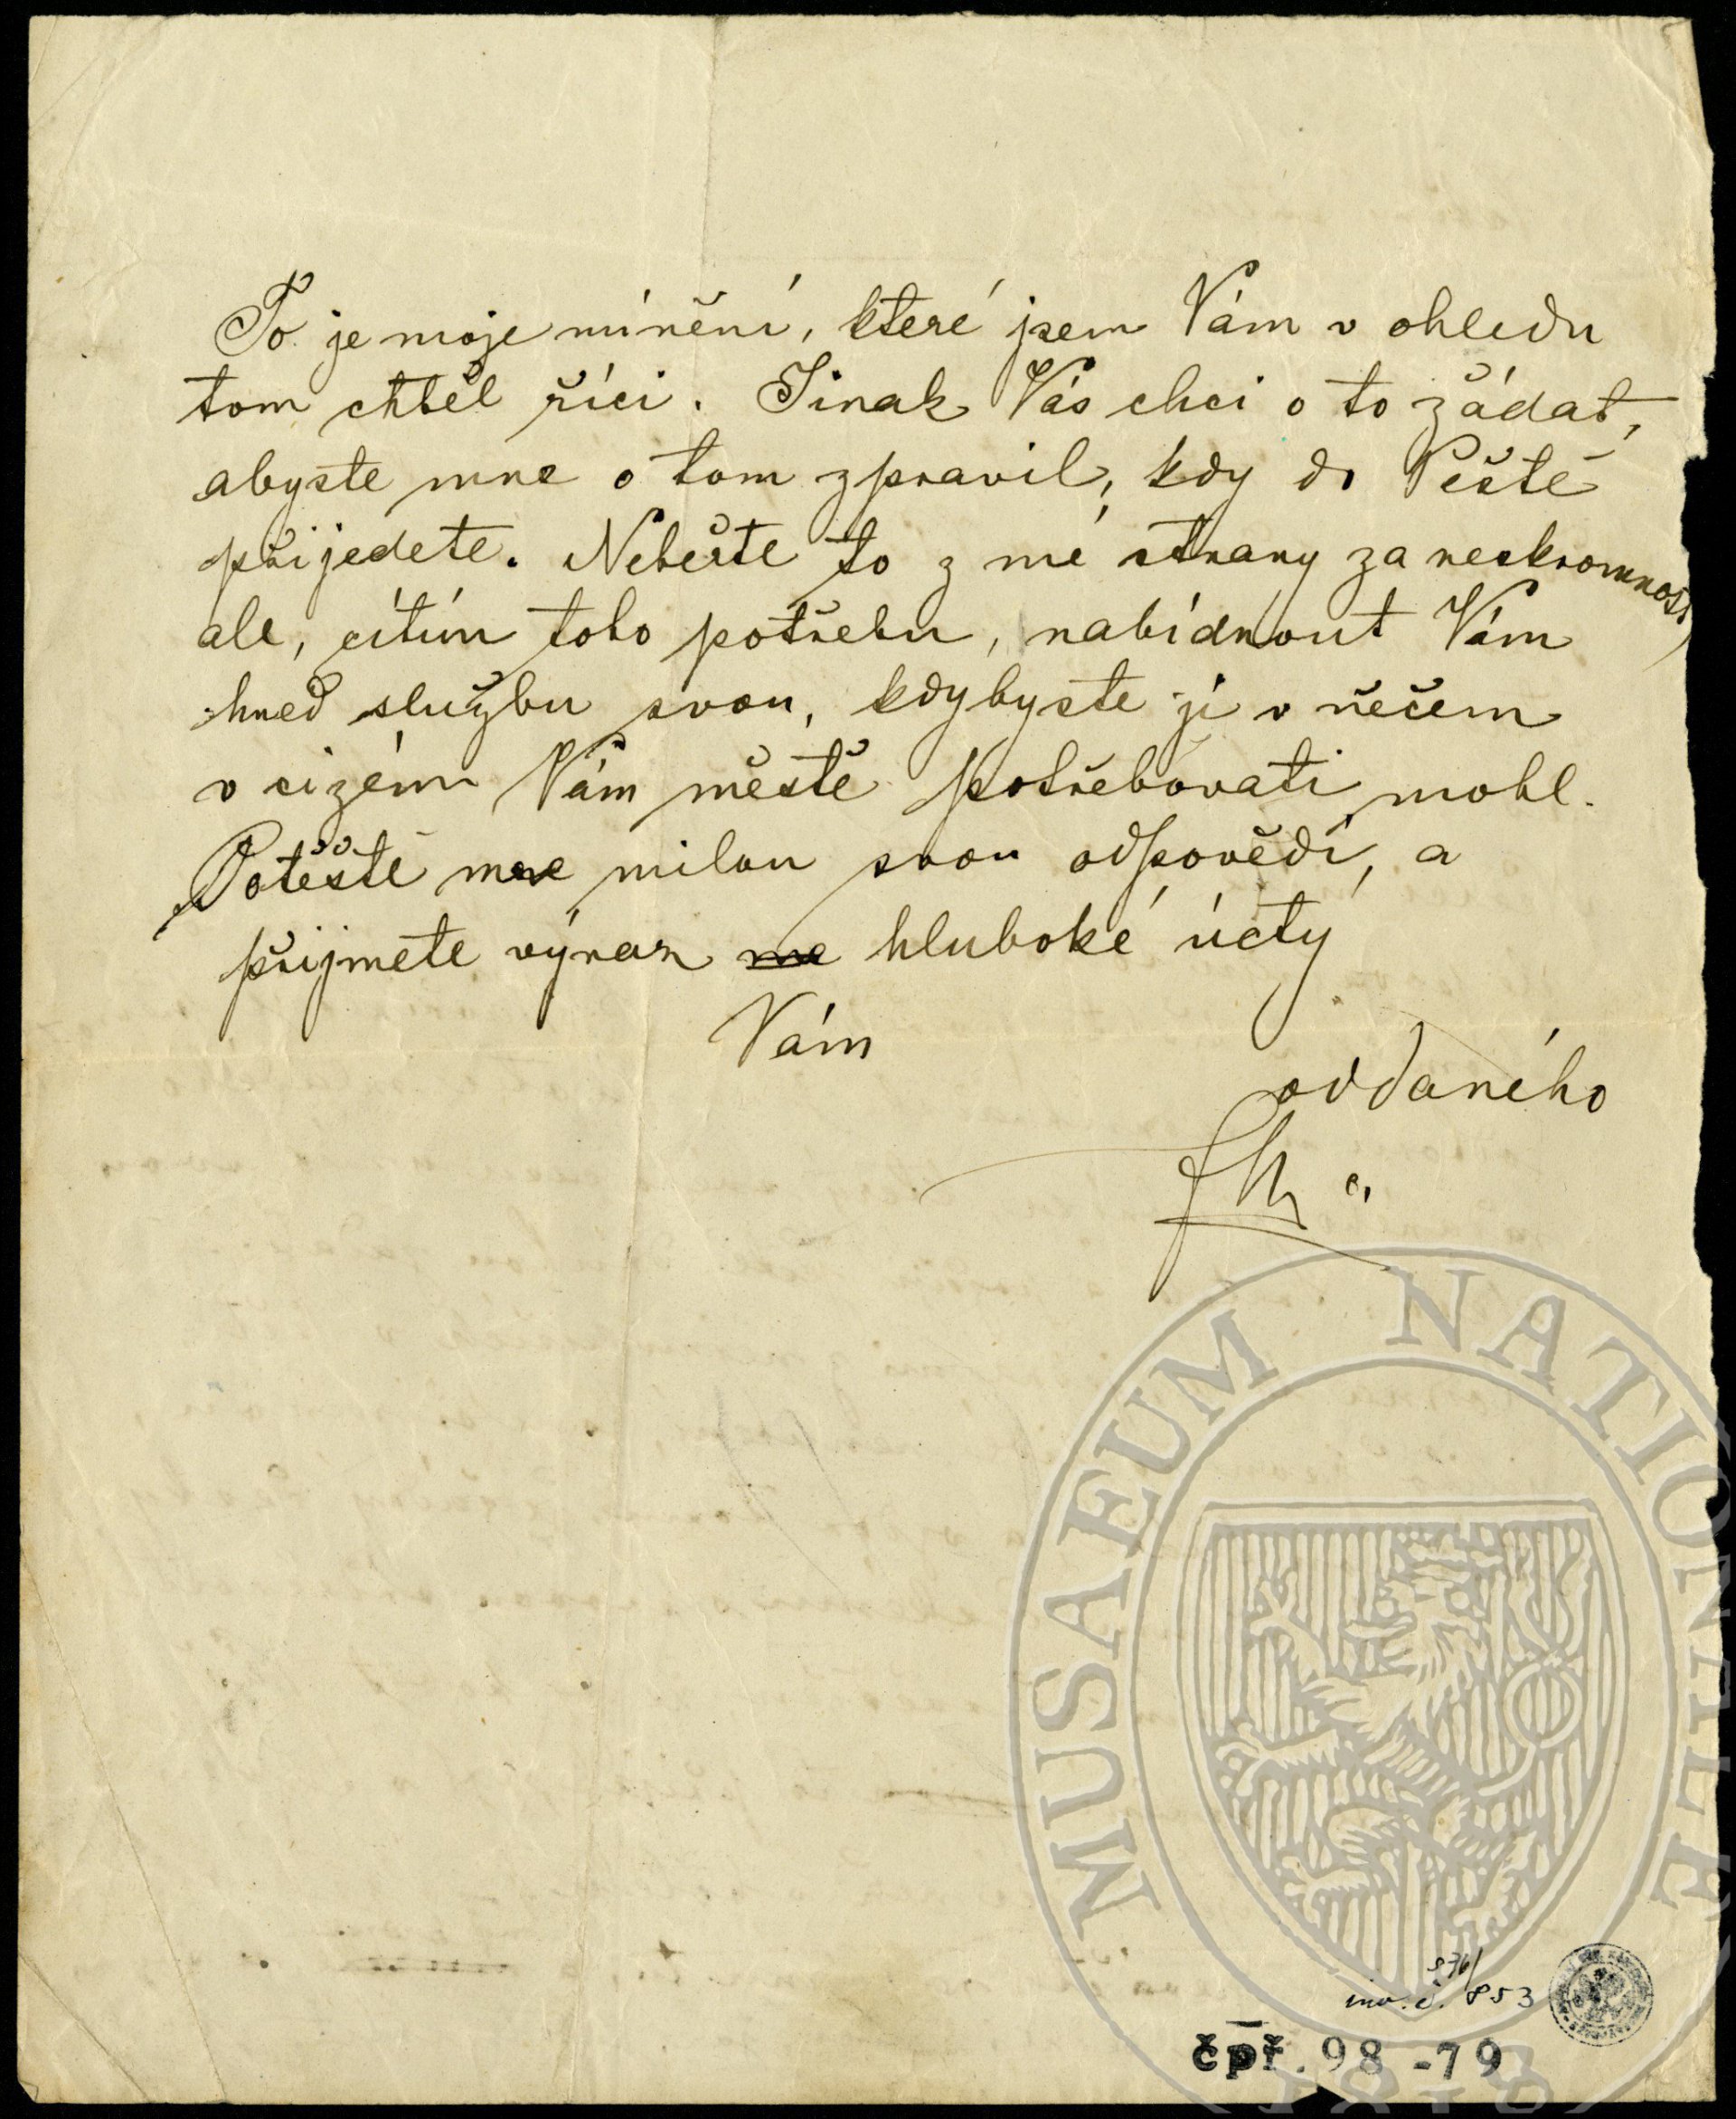 To je moje mínění, které jsem Vám v ohledu
tom chtěl říci. Jinak Vás chci o to žádat,
abyste mne o tom zpravil, kdy do Peště
přijedete. Neberte to z mé strany za neskromnost
ale, cítím toho potřebu, nabídnout Vám
hned službu svou, kdybyste jí v něčem
v cizém Vám městě potřebovati mohl.
Potěšte mne milou svou odpovědí, a
přijmete výraz hluboké úcty
Vám
oddaného
MUSAEUM NATIONALE
976/
inv. č. 853
čpř. 98-79